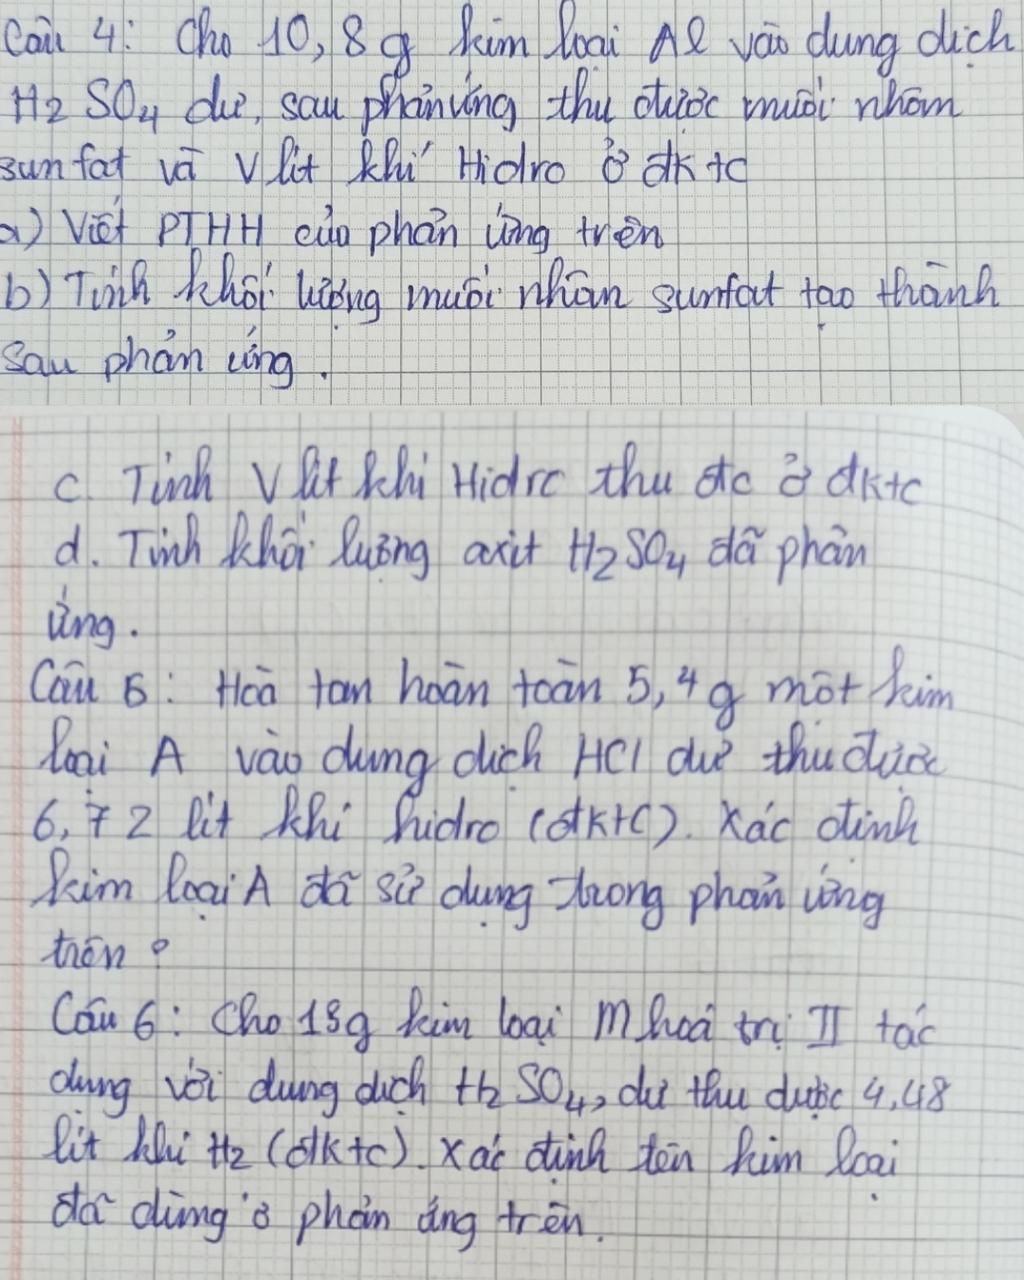 Câu 4: Cho 10,8 g kim loại Al vào dung dịch
H2 SO4 dư, sau phản ứng thu được muối nhôm
sunfat và V lít khí Hidro ở đktc
a) Viết PTHH của phản ứng trên
b) Tính khối lượng muối nhôm sunfat tạo thành
sau phản ứng.
c. Tính V lít khí Hidro thu đc ở đktc
d. Tính khối lượng axit H2SO4 đã phản
ứng.
Câu 5: Hoà tan hoàn toàn 5,4 g một kim
loại A vào dung dịch HCl dư thu được
6,72 lít khí hidro (đktc). Xác định
kim loại A đã sử dụng trong phản ứng
trên?
Câu 6: Cho 13g kim loại M hoá trị II tác
dụng với dung dịch H2 SO4, dư thu được 4,48
lít khí H2 (đktc). Xác định tên kim loại
đã dùng ở phản ứng trên.